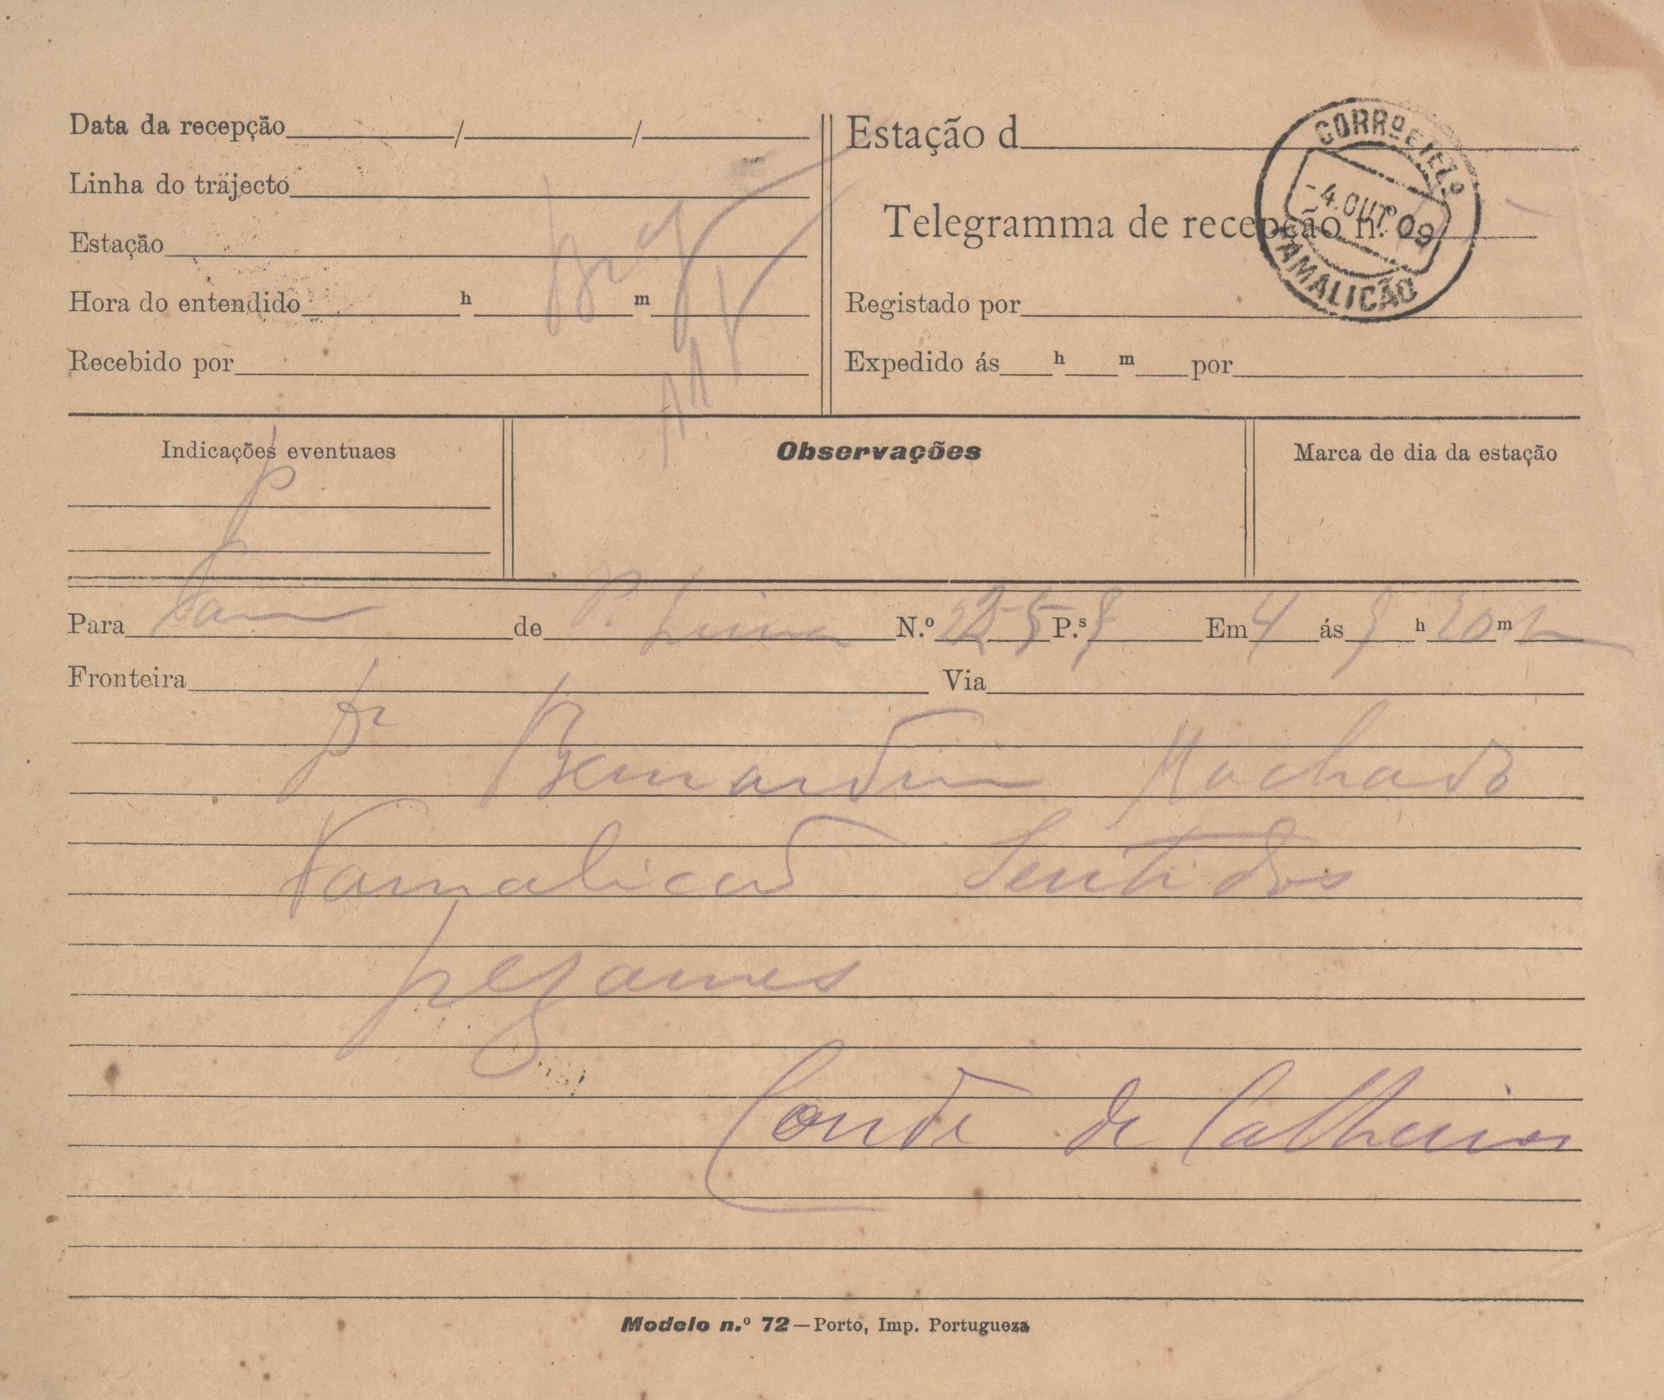 Data da recepção / /
Linha do trajecto
Estação
Hora do entendido h m
Recebido por
Estação d
Telegramma de recepção n.º
CORRº E TELº
-4.OUTº 09
FAMALICÃO
Registado por
Expedido ás h m por
Indicações eventuaes
Observações
Marca de dia da estação
P
Para Fam de P. Lima N.º P.s 8 Em 4 ás h 20 m
Fronteira Via
Dr Bernardino Machado
Famalicão Sentidos
pezames
Conde de Calheiros
Modelo n.º 72 — Porto, Imp. Portugueza